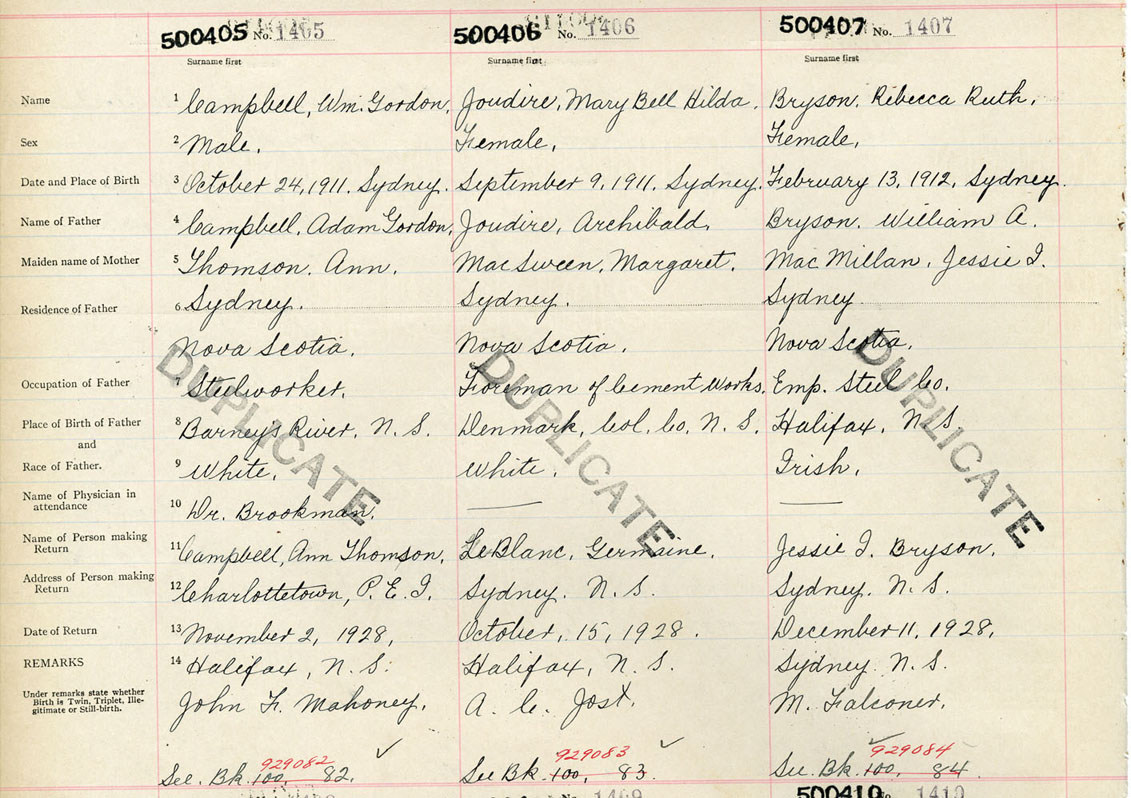 500405 No. 1405 500406 No. 1406 500407 No. 1407
Surname first Surname first Surname first
Name 1 Campbell, Wm. Gordon, Joudire, Mary Bell Hilda. Bryson, Rebecca Ruth,
Sex 2 Male, Female, Female,
Date and Place of Birth 3 October 24, 1911, Sydney. September 9, 1911, Sydney. February 13, 1912, Sydney.
Name of Father 4 Campbell, Adam Gordon, Joudire, Archibald, Bryson, William A.
Maiden name of Mother 5 Thomson, Ann, MacSween, Margaret, MacMillan, Jessie I.
Residence of Father 6 Sydney. Sydney. Sydney
Nova Scotia, Nova Scotia, Nova Scotia,
Occupation of Father 7 Steelworker, Foreman of Cement Works, Emp. Steel Co.
Place of Birth of Father 8 Barneys River, N. S. Denmark, Col. Co. N. S. Halifax, N S
and
Race of Father. 9 White, White, Irish,
Name of Physician in
attendance 10 Dr. Brookman, —— ——
Name of Person making
Return 11 Campbell, Ann Thomson, LeBlanc, Germaine, Jessie I. Bryson,
Address of Person making
Return 12 Charlottetown, P. E. I. Sydney. N. S. Sydney. N. S.
Date of Return 13 November 2, 1928, October, 15, 1928. December 11, 1928,
REMARKS 14 Halifax, N. S. Halifax, N. S. Sydney. N. S.
Under remarks state whether
Birth is Twin, Triplet, Ille-
gitimate or Still-birth.
John F. Mahoney, A. C. Jost, M. Falconer,
DUPLICATE DUPLICATE DUPLICATE
929082 929083 929084
See. Bk. 100, 82. See Bk. 100, 83. See. Bk. 100, 84.
No. 1409 500410 No. 1410